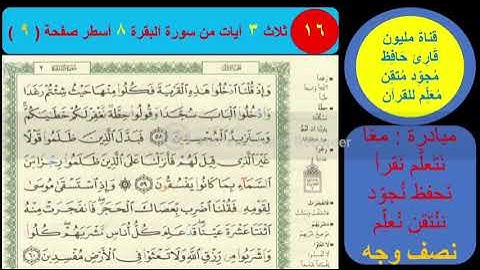 ١٦
ثلاث ٣ آيات من سورة البقرة ٨ أسطر صفحة ( ٩ )
قناة مليون
قارئ حافظ
مُجوِّد مُتقن
مُعلّم للقرآن
مبادرة : معًا
نتعلّم نقرأ
نحفظ نُجوّد
نُتقن نُعلّم
نصف وجه
وَإِذْ قُلْنَا ادْخُلُوا هَٰذِهِ الْقَرْيَةَ فَكُلُوا مِنْهَا حَيْثُ شِئْتُمْ رَغَدًا
وَادْخُلُوا الْبَابَ سُجَّدًا وَقُولُوا حِطَّةٌ نَغْفِرْ لَكُمْ خَطَايَاكُمْ
وَسَنَزِيدُ الْمُحْسِنِينَ ٥٨ فَبَدَّلَ الَّذِينَ ظَلَمُوا قَوْلًا
غَيْرَ الَّذِي قِيلَ لَهُمْ فَأَنْزَلْنَا عَلَى الَّذِينَ ظَلَمُوا رِجْزًا مِنَ
السَّمَاءِ بِمَا كَانُوا يَفْسُقُونَ ٥٩ وَإِذِ اسْتَسْقَىٰ مُوسَىٰ
لِقَوْمِهِ فَقُلْنَا اضْرِبْ بِعَصَاكَ الْحَجَرَ فَانْفَجَرَتْ مِنْهُ
اثْنَتَا عَشْرَةَ عَيْنًا قَدْ عَلِمَ كُلُّ أُنَاسٍ مَشْرَبَهُمْ كُلُوا
وَاشْرَبُوا مِنْ رِزْقِ اللَّهِ وَلَا تَعْثَوْا فِي الْأَرْضِ مُفْسِدِينَ ٦٠